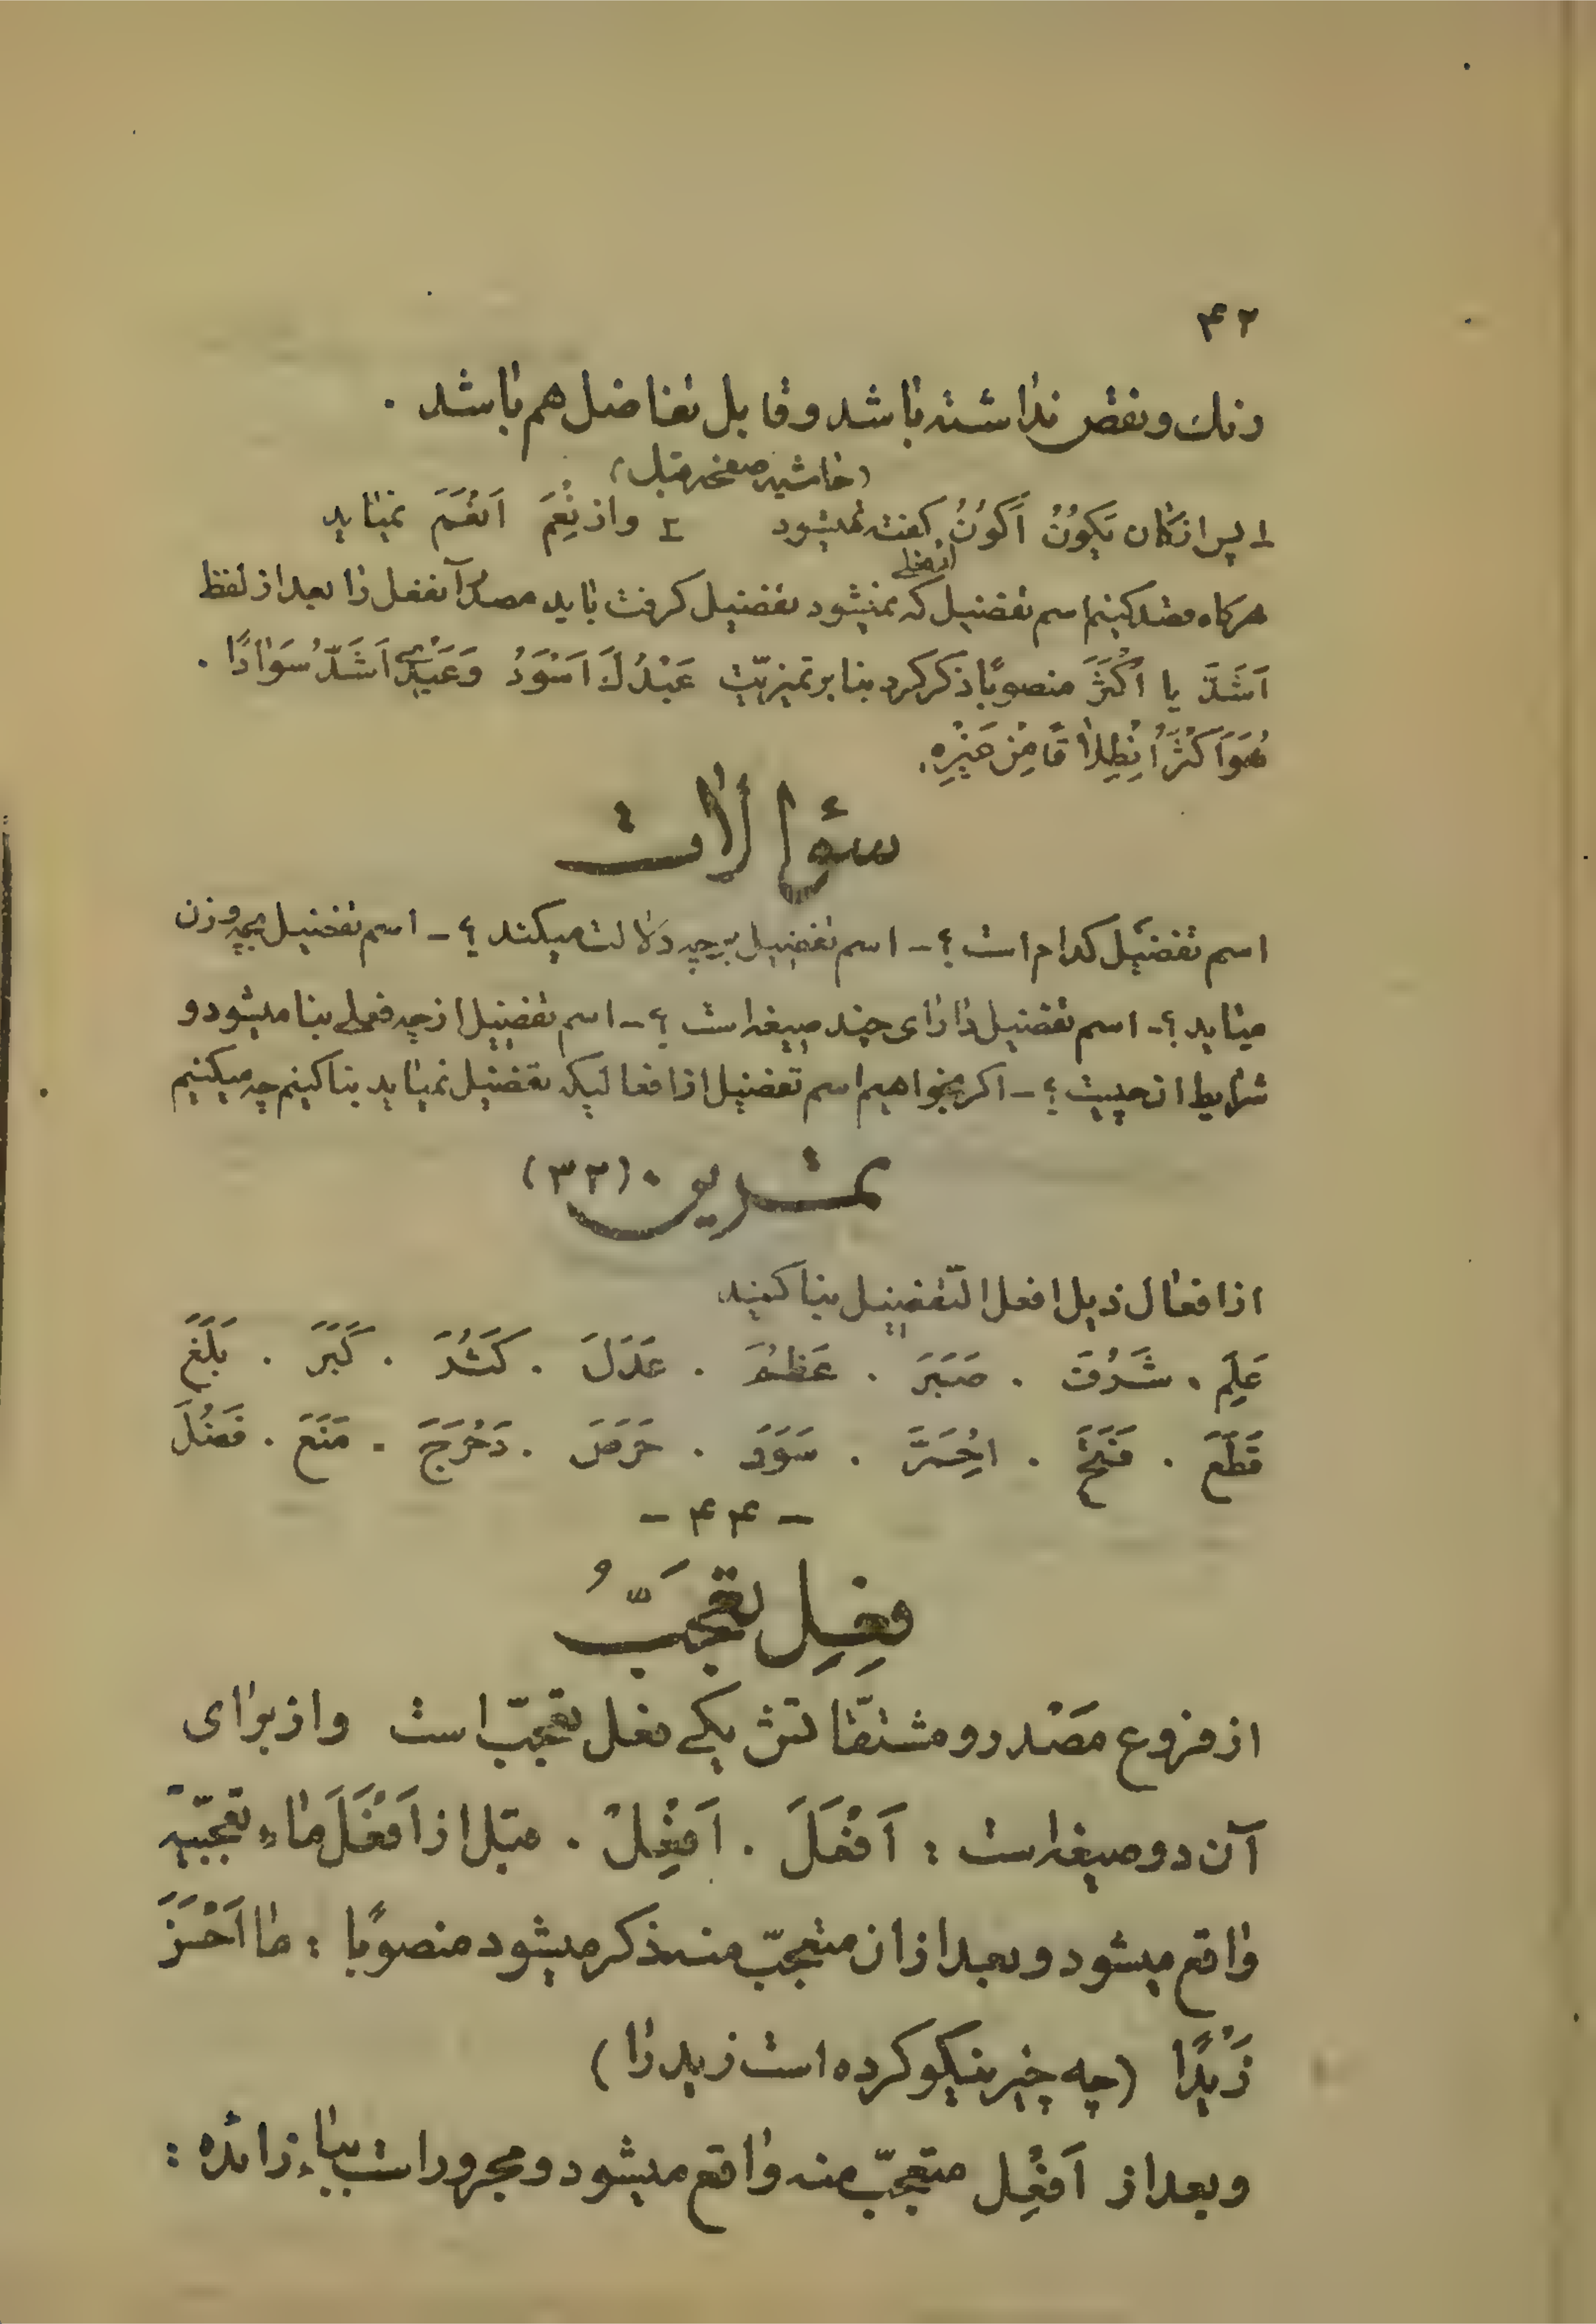 ۴۲
رنك و نقص نداشته باشد و قابل تفاضل هم باشد .
(حاشیه صفحه قبل)
۱ـ پس از كان يَكونُ اَكوَنُ گفته نميشود ۲ـ و از نِعِمَ اَنعَمَ نميايد
هرگاه قصد كنيم اسم تفضيل كه از فعلی نميشود تفضيل گرفت بايد مصدر آنفعل را بعد از لفظ
اَشَدَّ يا اَكْثَرَ منصوبًا ذكر كرد بنا بر تميزيّت عَبْدُكَ اَسْوَدُ وَعَبْدِی اَشَدُّ سَوٰادًا .
هُوَ اَكْثَرُ اِنْطِلاٰقًا مِنْ غَيْرِهِ.
سؤالات
اسم تفضيل كدام است ؟ ـ اسم تفضيل بر چه دلالت ميكند ؟ ـ اسم تفضيل بچه وزن
ميايد ؟ ـ اسم تفضيل داراى چند صيغه است ؟ ـ اسم تفضيل از چه فعلى بنا ميشود و
شرايط ان چيست ؟ ـ اكر بخواهيم اسم تفضيل از افعاليكه تفضيل نميايد بنا كنيم چه ميكنيم
تمرين . (۳۲)
از افعال ذيل افعل التّفضيل بنا كنيد
عَلِمَ . شَرُفَ . صَبَرَ . عَظُمَ . عَدَلَ . كَثُرَ . كَبَرَ . بَلَغَ
قَطَعَ . فَتَحَ . اِحْمَرَّ . سَوَدَ . حَرَصَ . دَحْرَجَ . مَنَعَ . فَضُلَ
ـ ۴۴ ـ
فِعْلِ تعَجّبُ
از فروع مَصْدر و مشتقّاتش يكى فعل تعجّب است و از براى
آن دو صيغه است : اَفْعَلَ . اَفْعِلْ . قبل از اَفْعَلَ ماء تعجّبيّه
واقع ميشود و بعد از ان متعجّب منه ذكر ميشود منصوبًا : ما اَحْسَنَ
زَيْدًا (چه چيز نيكو كرده است زيد را)
و بعد از اَفْعِل متعجّب منه واقع ميشود و مجرور است بباء زائده :